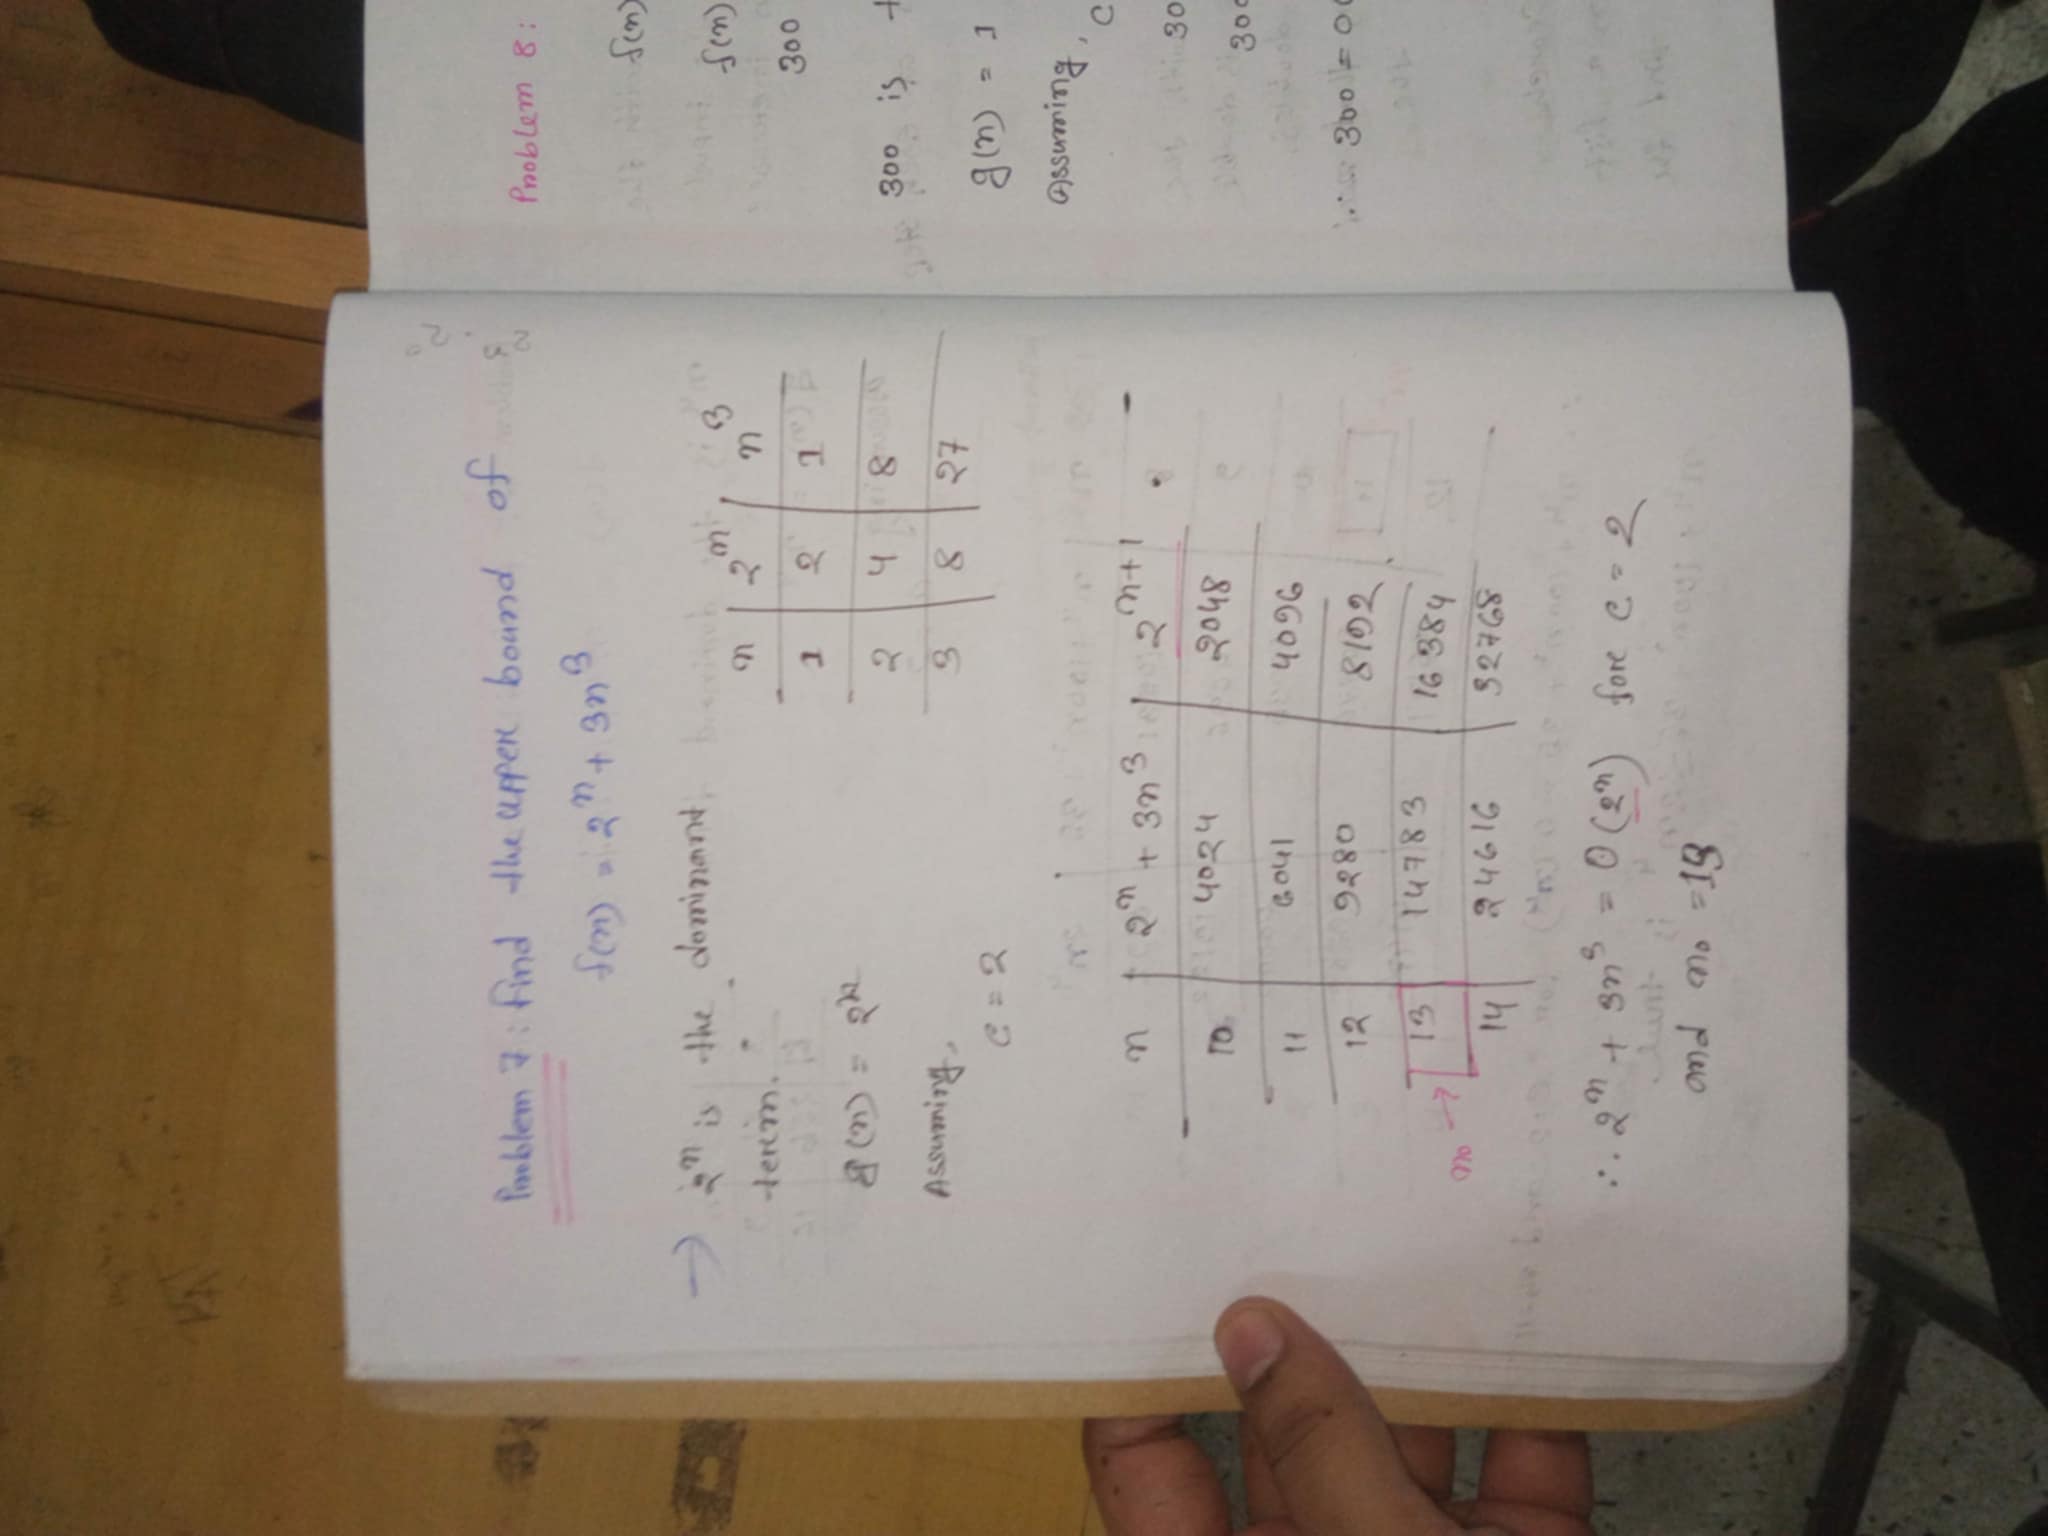 Problem 7: find the upper bound of
f(n) = 2ⁿ + 3n³
→ 2ⁿ is the dominant
term.
g(n) = 2ⁿ
Assuming,
c = 2
n | 2ⁿ | n³
1 | 2 | 1
2 | 4 | 8
3 | 8 | 27
n | 2ⁿ + 3n³ | 2ⁿ⁺¹
10 | 4024 | 2048
11 | 6041 | 4096
12 | 9280 | 8192
n₀ → 13 | 14783 | 16384
14 | 24616 | 32768
∴ 2ⁿ + 3n³ = O(2ⁿ) for c = 2
and n₀ = 13
Problem 8:
f(n)
f(n)
300
300 is
g(n) = 1
Assuming,
c
30
300
∴ 300 = O(